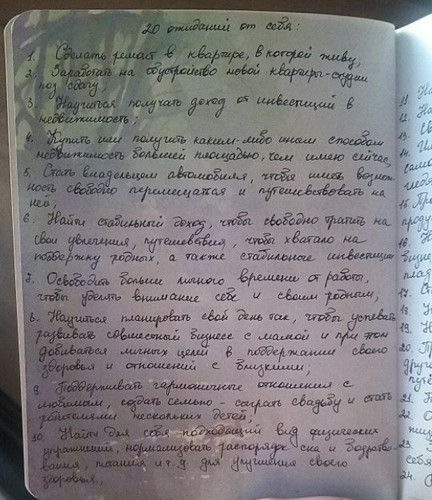 20 ожиданий от себя:
1. Сделать ремонт в квартире, в которой живу;
2. Заработать на обустройство новой квартиры-студии
под сдачу;
3. Научиться получать доход от инвестиций в
недвижимость;
4. Купить или получить каким-либо иным способом
недвижимость большей площадью, чем имею сейчас;
5. Стать владельцем автомобиля, чтобы иметь возмож
ность свободно перемещаться и путешествовать на
ней;
6. Найти стабильный доход, чтобы свободно тратить на
свои увлечения, путешествия, чтобы хватало на
поддержку родных, а также стабильные инвестиции
7. Освободить больше личного времени от работы,
чтобы уделять внимание себе и своим родным;
8. Научиться планировать свой день так, чтобы успевать
развивать совместный бизнес с мамой и при этом
добиваться личных целей в поддержании своего
здоровья и отношений с близкими;
9. Поддерживать гармоничные отношения с
любимым, создать семью - сыграть свадьбу и стать
родителями нескольких детей;
10. Найти для себя подходящий вид физических
упражнений, нормализовать распорядок сна и бодрство-
вания, питания и т.д. для улучшения своего
здоровья.,